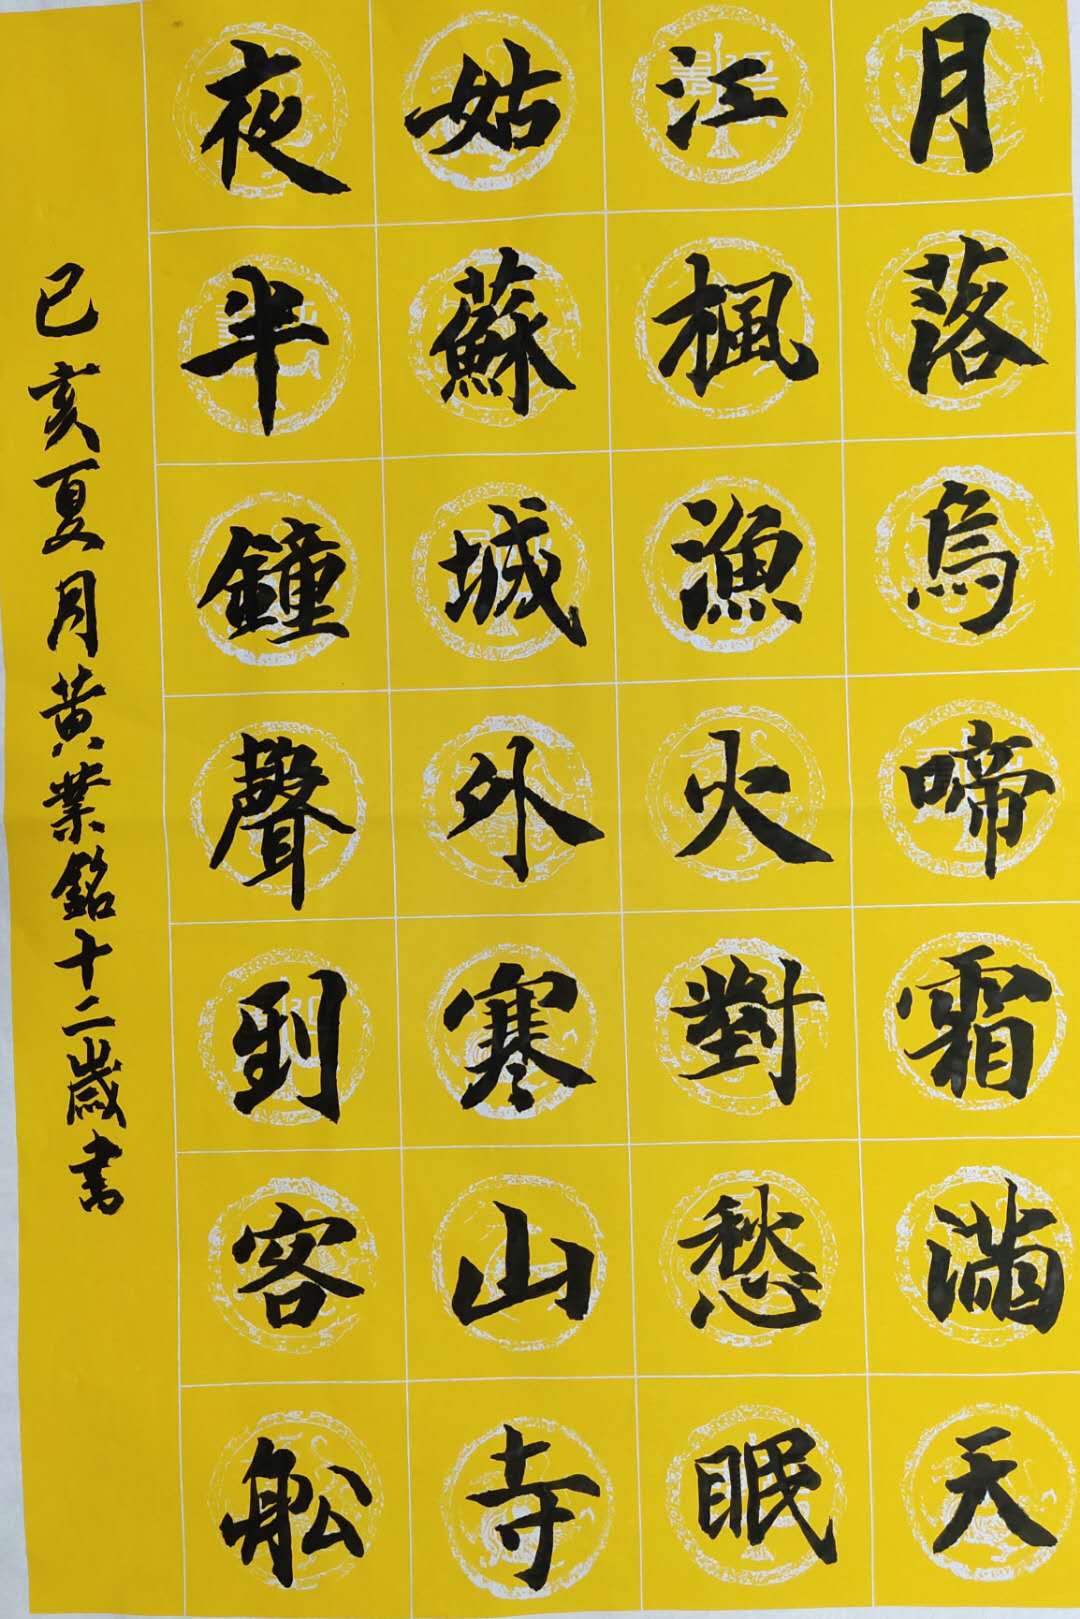 月落烏啼霜滿天
江楓漁火對愁眠
姑蘇城外寒山寺
夜半鐘聲到客舩
己亥夏月黄業銘十二歲書